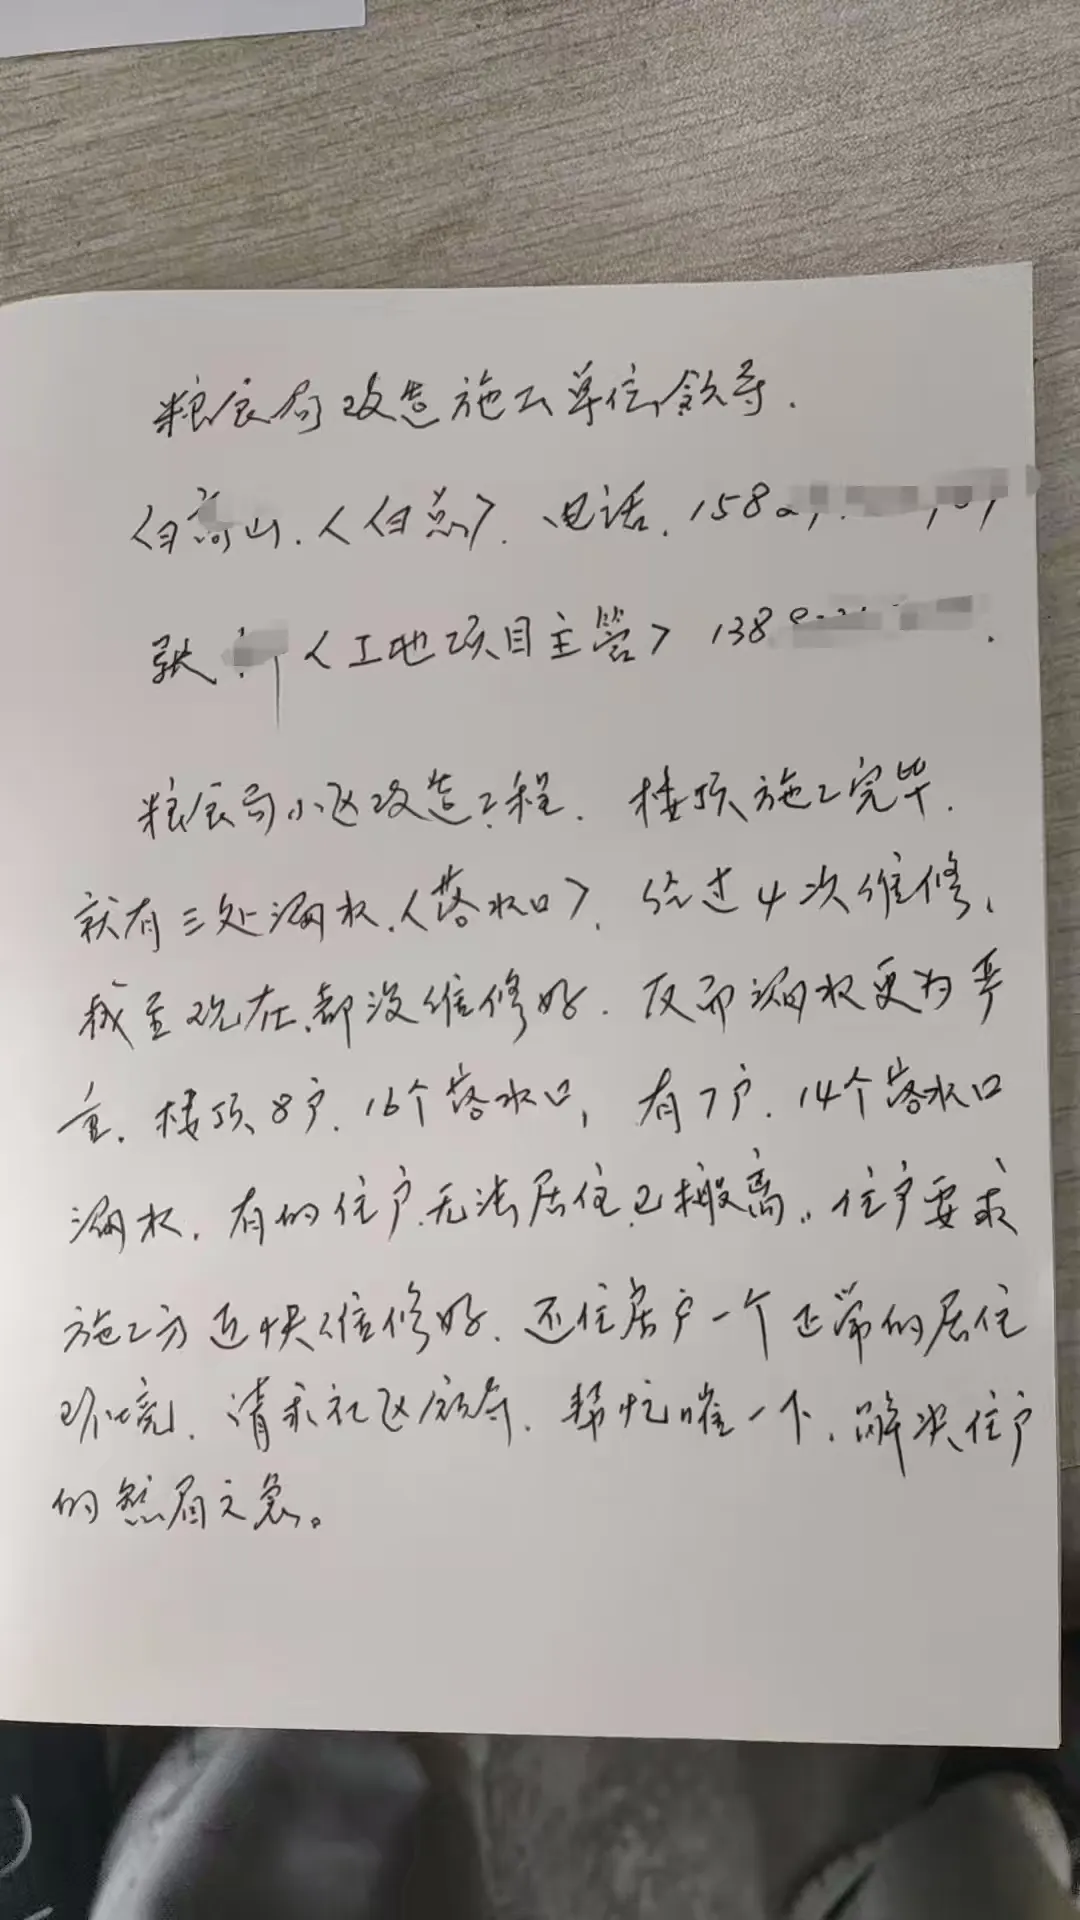 粮食局改造施工单位领导.
白山.〈白总〉.电话.158
张〈工地项目主管〉138.
粮食局小区改造工程.楼顶施工完毕.
就有三处漏水.〈落水口〉.经过4次维修,
截至现在.都没维修好.反而漏水更为严
重.楼顶8户.16个落水口,有7户.14个落水口
漏水.有的住户.无法居住.已搬离..住户要求
施工方近快维修好.还住居户一个正常的居住
环境.请求社区领导.帮忙催一下.解决住户
的然眉之急。